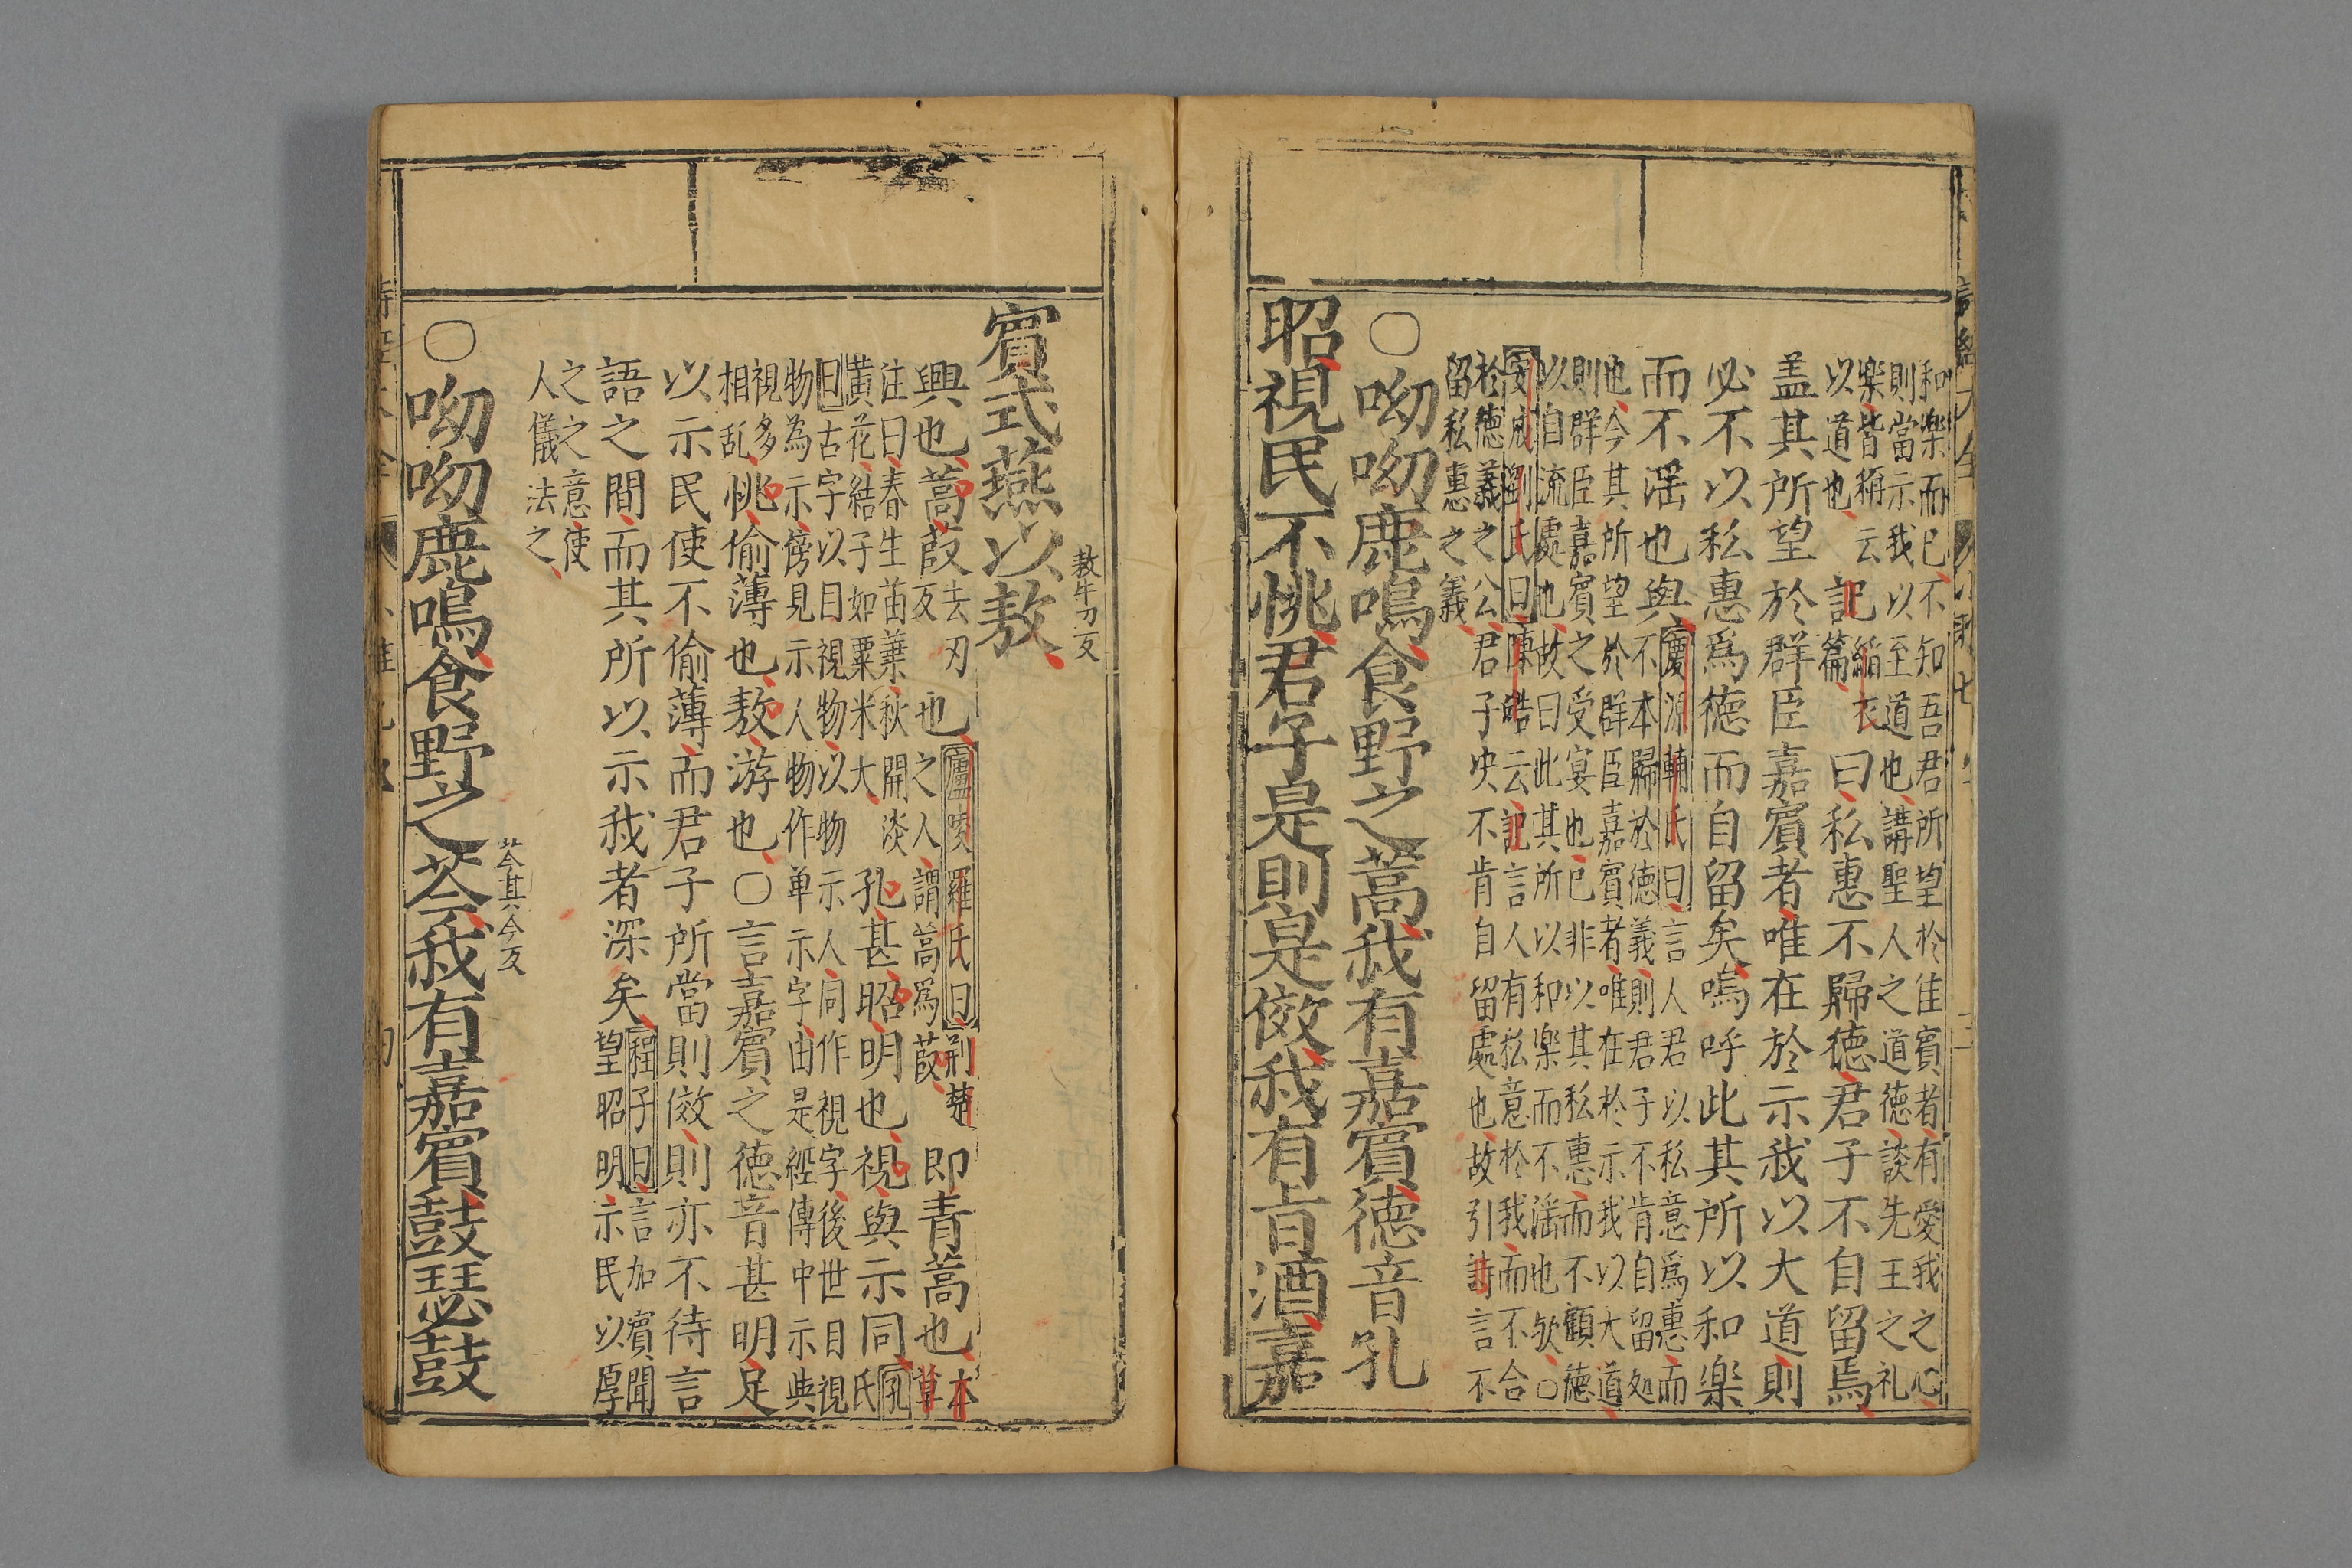 和樂而已不知吾君所望於佳賓者有愛我之心
則當示我以至道也講聖人之道德談先王之礼
樂皆稱云緇衣
以道也記篇曰私惠不歸德君子不自留焉
盖其所望於群臣嘉賓者唯在於示我以大道則
必不以私惠爲德而自留矣嗚呼此其所以和樂
而不滛也與慶源輔氏曰言人君以私意爲惠而
不本歸於德義則君子不肯自留処
也今其所望於群臣嘉賓者唯在於示我以大道
則群臣嘉賓之受宴也已非以其私惠而不顧德
以自流處也故曰此其所以和樂而不滛也欤○
安成劉氏曰陳皓云記言人有私意於我而不合
於德義之公君子决不肯自留處也故引詩言不
留私惠之義
○呦呦鹿鳴食野之蒿我有嘉賓德音孔
昭視民不恌君子是則是傚我有旨酒嘉
賓式燕以敖
敖牛刀反
興也蒿菣去刃反也廬陵羅氏曰荆楚之人謂蒿爲菣即青蒿也本草
注曰春生苗葉秋開淡
黃花結子如粟米大孔甚昭明也視與示同孔氏
曰古字以目視物以物示人同作視字後世目視
物為示傍見示人物作单示字由是經傳中示典
視多相乱恌偷薄也敖游也○言嘉賓之德音甚明足
以示民使不偷薄而君子所當則傚則亦不待言
語之間而其所以示我者深矣程子曰言加賓聞
望昭明示民以厚
之之意使
人儀法之
○呦呦鹿鳴食野之芩我有嘉賓鼓瑟鼓
芩其今反